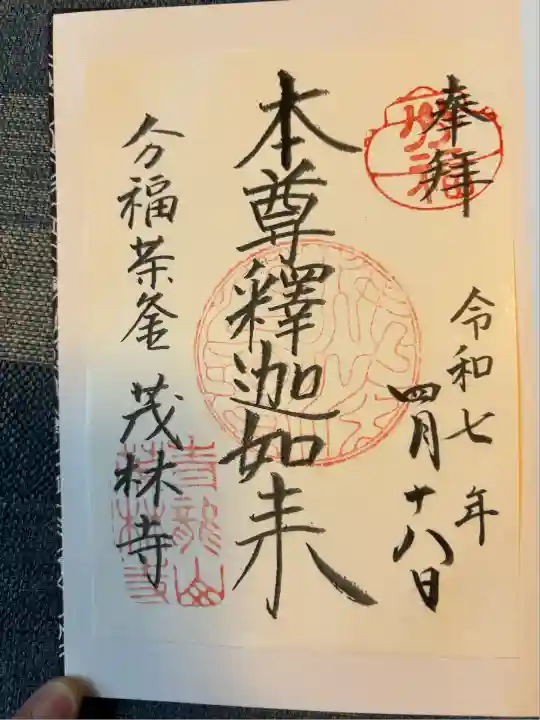 奉拝
令和七年
四月十八日
本尊釋迦如来
分福茶釜 茂林寺